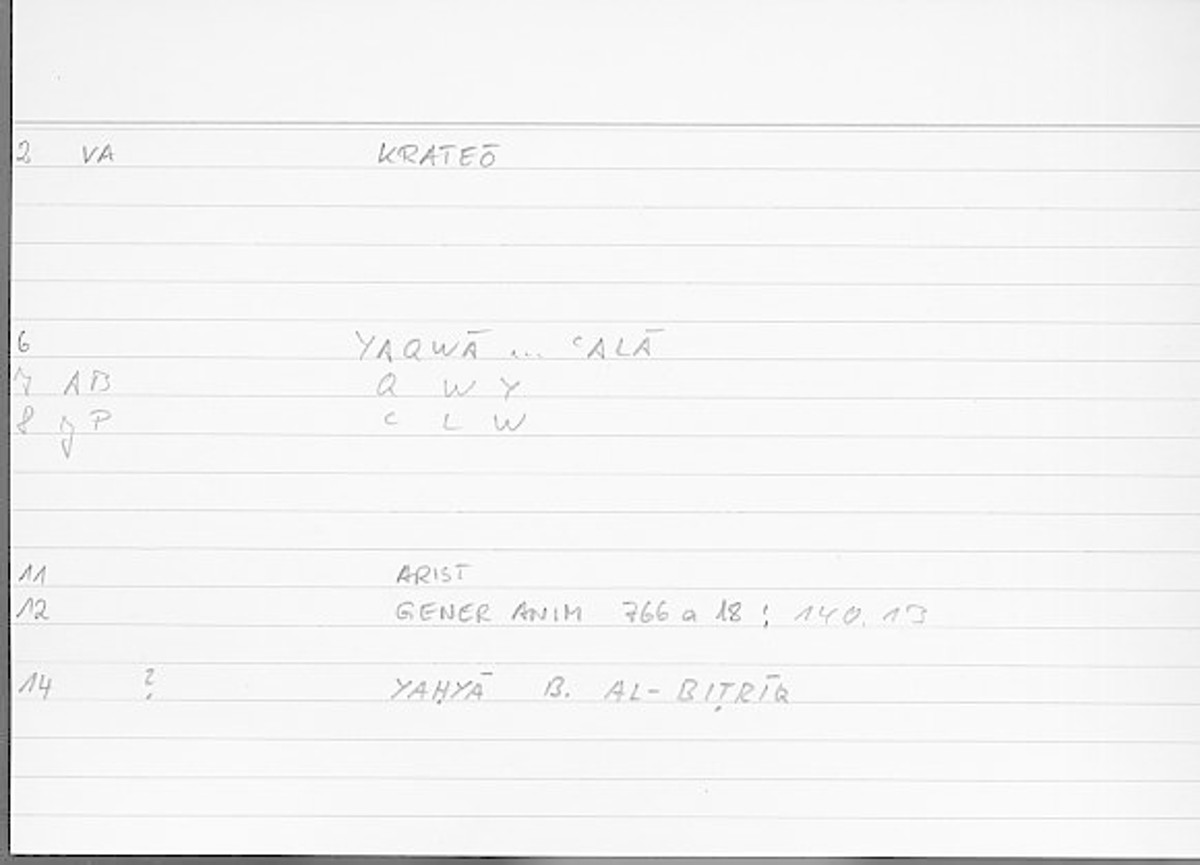 2 VA KRATEŌ
6 YAQWĀ ... ʿALĀ
7 AB Q W Y
8 yP ʿ L W
11 ARIST
12 GENER ANIM 766 a 18 ; 140.13
14 ? YAḤYĀ B. AL-BIṬRĪQ